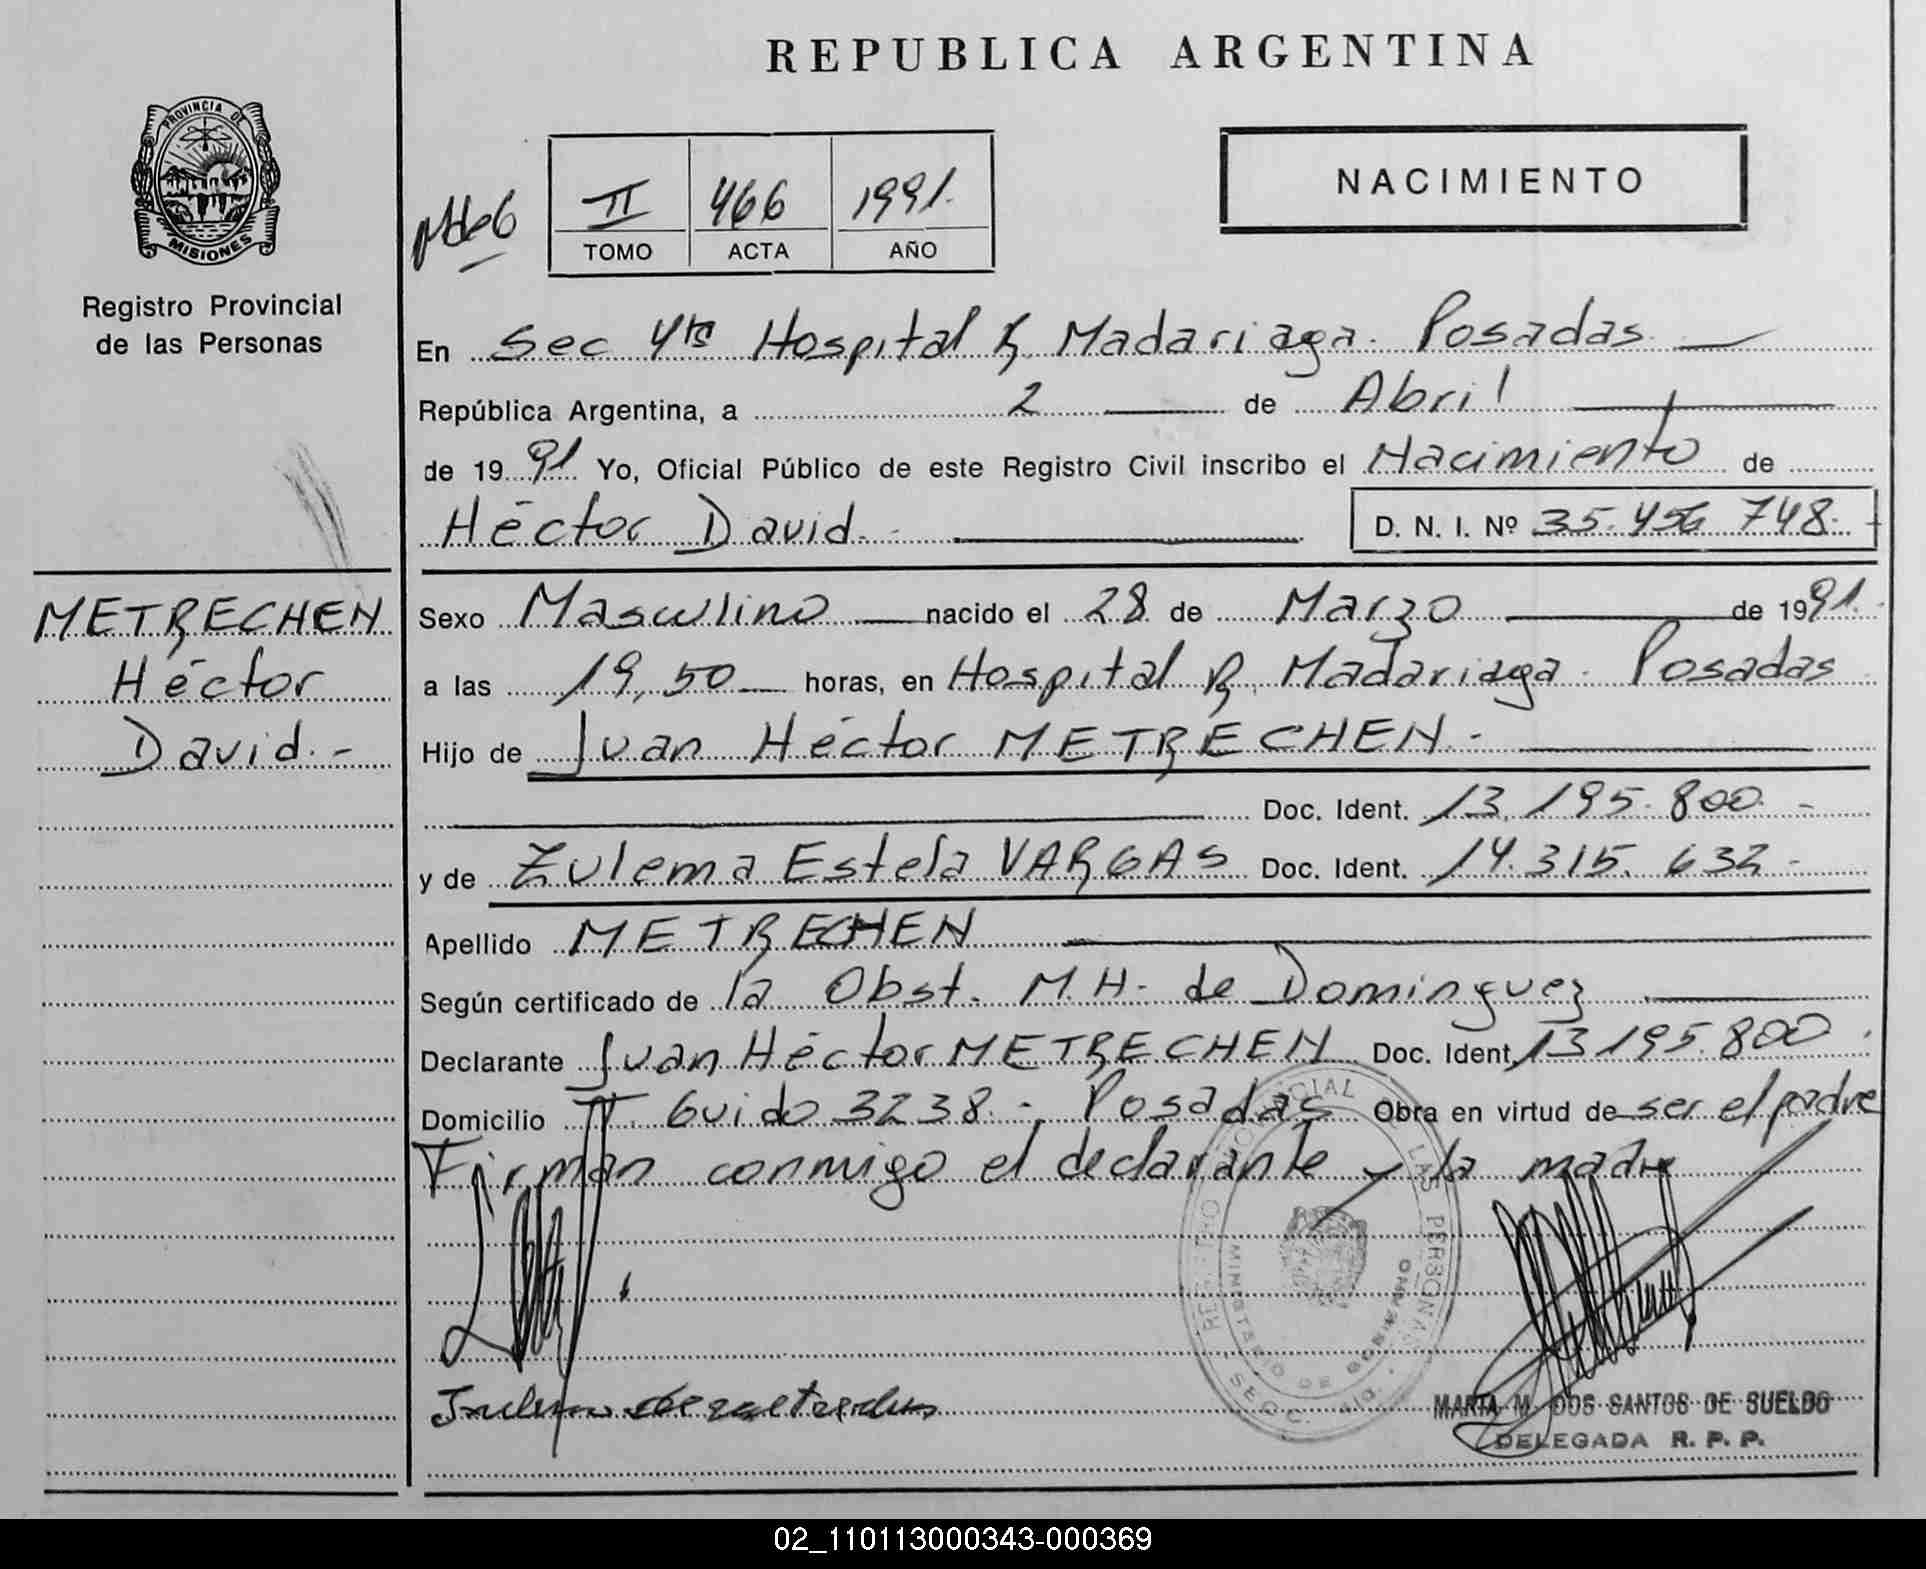 REPUBLICA ARGENTINA
PROVINCIA DE
MISIONES
Registro Provincial
de las Personas
NACIMIENTO
II 466 1991.
TOMO ACTA AÑO
En Sec 4ta Hospital R. Madariaga. Posadas
República Argentina, a 2 de Abril
de 1991. Yo, Oficial Público de este Registro Civil inscribo el Nacimiento de
Héctor David.- D. N. I. Nº 35.456 748.-
METRECHEN
Héctor
David.-
Sexo Masculino nacido el 28 de Marzo de 1991.-
a las 19,50 horas, en Hospital R. Madariaga. Posadas
Hijo de Juan Héctor METRECHEN.-
Doc. Ident. 13.195.800.-
y de Zulema Estela VARGAS Doc. Ident. 14.315.632.-
Apellido METRECHEN
Según certificado de la Obst. M.H. de Dominguez
Declarante Juan Héctor METRECHEN Doc. Ident. 13195.800.
Domicilio T. Guido 3238.- Posadas Obra en virtud de ser el padre
Firman conmigo el declarante y la madre
REGISTRO PROVINCIAL DE LAS PERSONAS
MINISTERIO DE GOBIERNO
SECC. 4ta.
MARTA M. DOS SANTOS DE SUELDO
DELEGADA R. P. P.
02_110113000343-000369